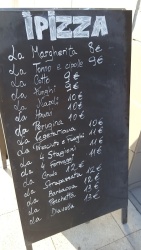 iPIZZA
La Margherita 8€
La Tonno e cipolle 9€
La Cotto 9€
La Funghi 9€
La Napoli 10€
La Hawai 10€
La Perugina 10€
La Capricciosa 11€
La Prosciutto e Funghi 11€
La 4 Stagioni 11€
La 4 Formaggi
La Crudo 12€ 12€
La 12€
La Boscaiola 13€
La Porchetta 13€
La Diavola